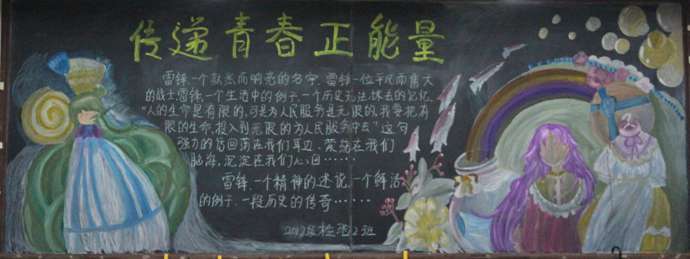 传递青春正能量
雷锋,一个默然而明亮的名字,雷锋一位平凡而伟大
的战士,雷锋,一个生活中的例子,一个历史无法抹去的记忆,
“人的生命是有限的,可是为人民服务是无限的,我要把有
限的生命,投入到无限的为人民服务中去”这句
强力的话回荡在我们耳边,荣荡在我们
脑海,沉淀在我们心田……
雷锋,一个精神的述说,一个鲜活
的例子,一段历史的传奇……
2班